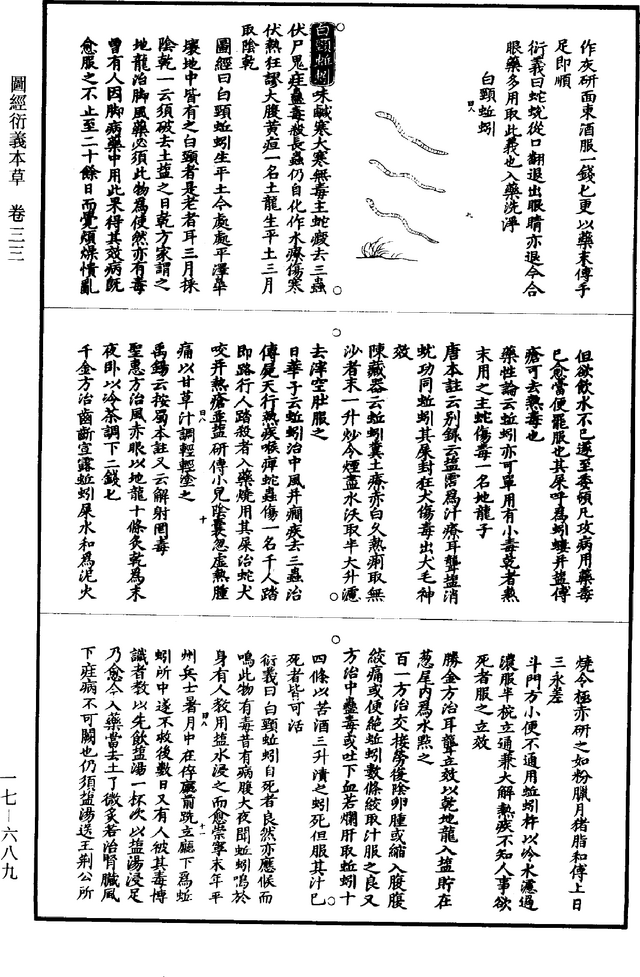 圖經衍義本草 卷三三
作灰研面東酒服一錢匕更以藥末傅手
足即順
衍義曰蛇蛻從口翻退出眼睛亦退今合
眼藥多用取此義也入藥洗淨
白頸蚯蚓
四八
九
白頸蚯蚓味鹹寒大寒無毒主蛇瘕去三蟲
伏尸鬼疰蠱毒殺長蟲仍自化作水療傷寒
伏熱狂謬大腹黃疸一名土龍生平土三月
取陰乾
圖經曰白頸蚯蚓生平土今處處平澤皐
壤地中皆有之白頸者是老者耳三月採
陰乾一云須破去土鹽之日乾方家謂之
地龍治脚風藥必須此物爲使然亦有毒
曾有人因脚病藥中用此果得其效病既
愈服之不止至二十餘日而覺煩燥憒亂
但欲飲水不已遂至委頓凡攻病用藥毒
已愈當便罷服也其屎呼爲蚓螻并鹽傅
瘡可去熱毒也
藥性論云蚯蚓亦可單用有小毒乾者熬
末用之主蛇傷毒一名地龍子
唐本註云别錄云鹽霑爲汁療耳聾鹽消
蚘功同蚯蚓其屎封狂犬傷毒出犬毛神
效
陳藏器云蚯蚓糞土療赤白久熱痢取無
沙者末一升炒令煙盡水沃取半大升濾
去滓空肚服之
日華子云蚯蚓治中風并癎疾去三蟲治
傳屍天行熱疾喉痺蛇蟲傷一名千人踏
即路行人踏殺者入藥燒用其屎治蛇犬
咬并熱瘡並鹽研傅小兒陰囊忽虛熱腫
四八
十
痛以甘草汁調輕輕塗之
禹錫云按蜀本註又云解射罔毒
聖惠方治風赤眼以地龍十條炙乾爲末
夜卧以冷茶調下二錢匕
千金方治齒齗宣露蚯蚓屎水和爲泥火
燒令極赤研之如粉臘月猪脂和傅上日
三永差
斗門方小便不通用蚯蚓杵以冷水濾過
濃服半椀立通兼大解熱疾不知人事欲
死者服之立效
勝金方治耳聾立效以乾地龍入鹽貯在
葱尾内爲水點之
百一方治交接勞復陰卵腫或縮入腹腹
絞痛或便絶蚯蚓數條絞取汁服之良又
方治中蠱毒或吐下血若爛肝取蚯蚓十
四條以苦酒三升漬之蚓死但服其汁已
死者皆可活
衍義曰白頸蚯蚓自死者良然亦應候而
鳴此物有毒昔有病腹大夜聞蚯蚓鳴於
身有人教用鹽水浸之而愈崇寧末年平
四八
十一
州兵士暑月中在倅廳前跣立廳下爲蚯
蚓所中遂不救後數日又有人被其毒博
識者教以先飲鹽湯一杯次以鹽湯浸足
乃愈今入藥當去土了微炙若治腎臟風
下疰病不可闕也仍須鹽湯送王荆公所
一七-六八九